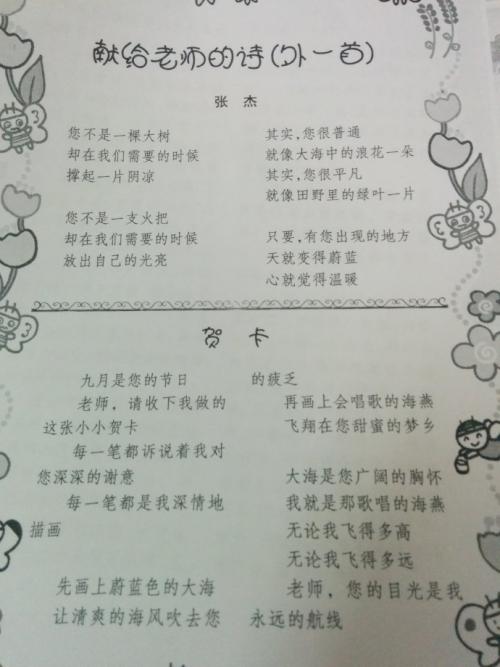 献给老师的诗(外一首)
张 杰
您不是一棵大树
却在我们需要的时候
撑起一片阴凉
您不是一支火把
却在我们需要的时候
放出自己的光亮
其实,您很普通
就像大海中的浪花一朵
其实,您很平凡
就像田野里的绿叶一片
只要,有您出现的地方
天就变得蔚蓝
心就觉得温暖
贺 卡
九月是您的节日
老师，请收下我做的
这张小小贺卡
每一笔都诉说着我对
您深深的谢意
每一笔都是我深情地
描画
先画上蔚蓝色的大海
让清爽的海风吹去您
的疲乏
再画上会唱歌的海燕
飞翔在您甜蜜的梦乡
大海是您广阔的胸怀
我就是那歌唱的海燕
无论我飞得多高
无论我飞得多远
老师，您的目光是我
永远的航线